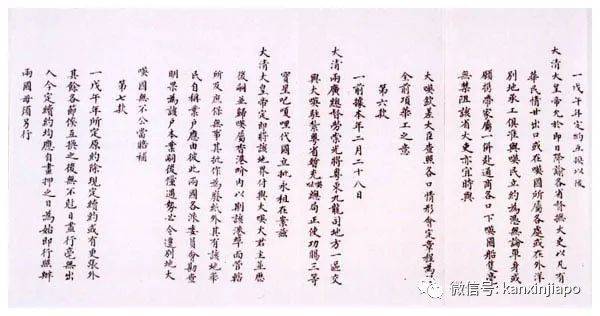 一戊午年定約互換以後
大清大皇帝允於即日降諭各省督撫大吏以凡有
華民情甘出口或在𠸄國所屬各處或在外洋
別地承工俱准與𠸄民立約為憑無論單身或
願攜帶家屬一併赴通商各口下𠸄國船隻毫
無禁阻該省大吏亦宜時與
大𠸄欽差大臣查照各口情形會定章程為
全前項華工之意
第六款
一前據本年二月二十八日
大清兩廣總督勞崇光將粵東九龍司地方一區交
與大𠸄駐紮粵省暫充總局正使功賜三等
寶星吧嗄哩代國立批永租在案茲
大清大皇帝定即將該地界付與大𠸄大君主並歷
後嗣並歸𠸄屬香港界內以期該港埠面管轄
所及庶保無事其批作為廢紙外其有該地華
民自稱業戶應由彼此兩國各派委員會勘查
明果為該戶本業嗣後倘遇勢必令遷別地大
𠸄國無不公當賠補
第七款
一戊午年所定原約除現定續約或有更張外
其餘各節俟互換之後無不尅日盡行毫無出
入今定續約均應自畫押之日為始即行照辦
兩國毋須另行
微信号: kanxinjiapo